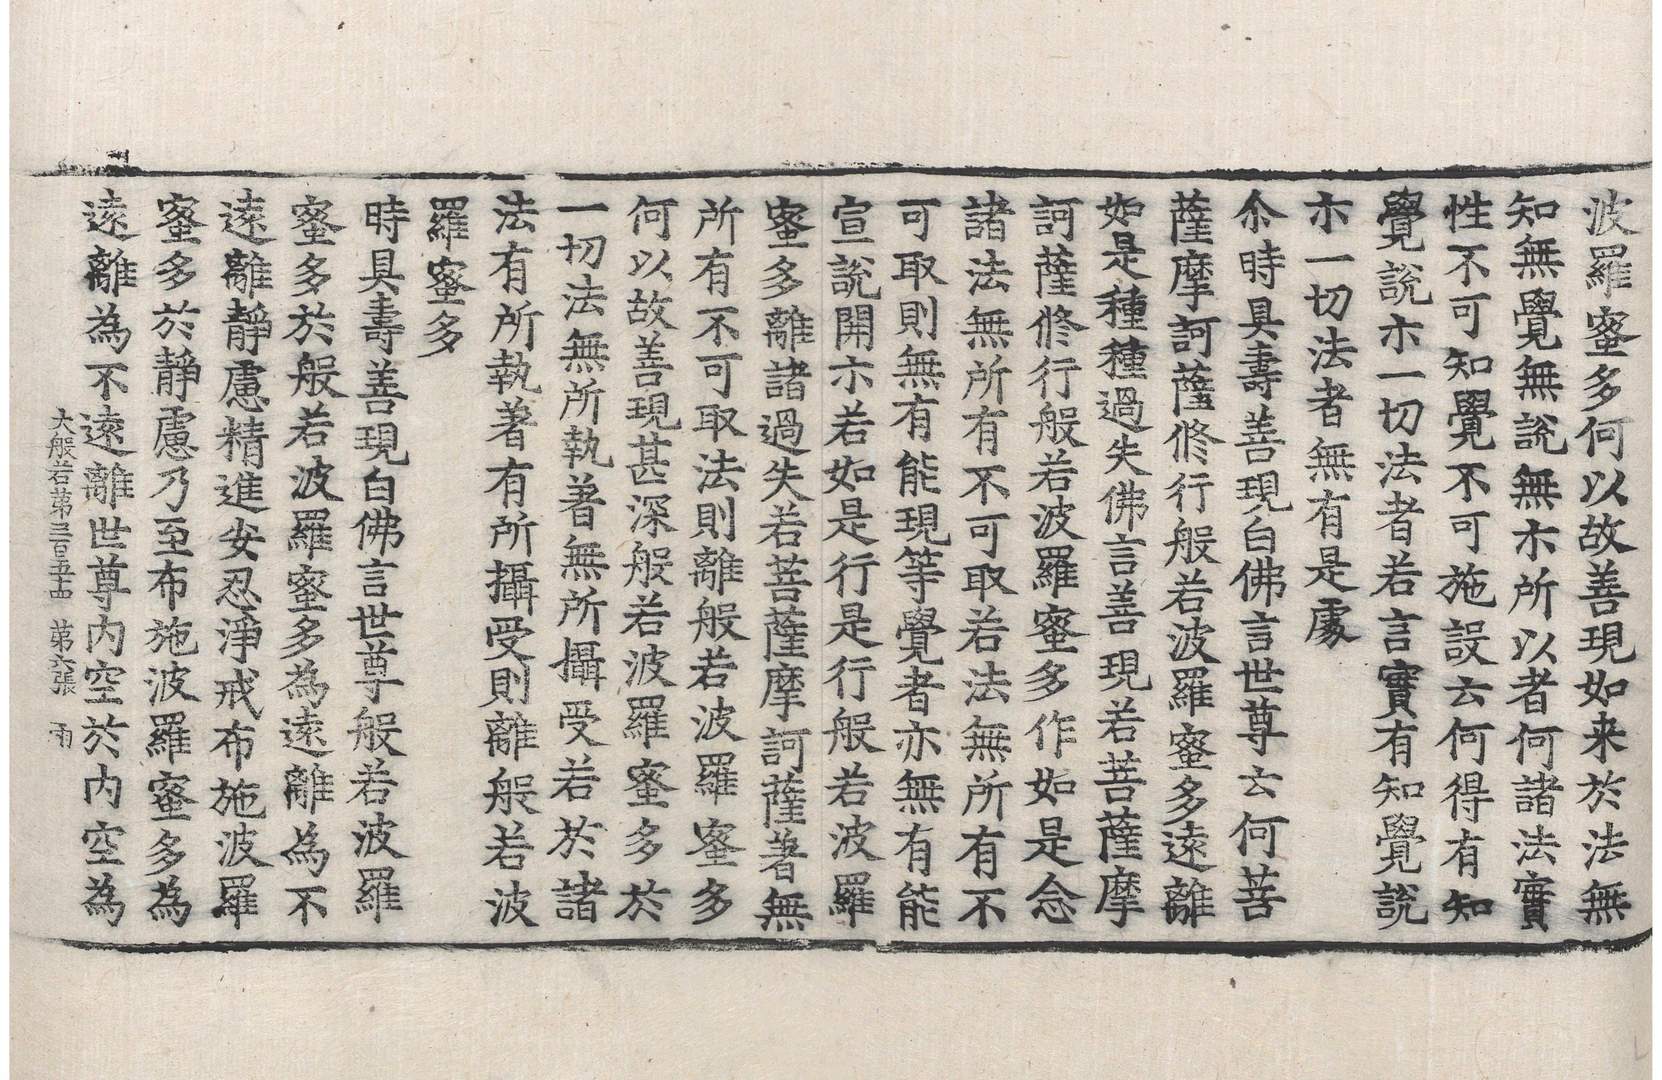 波羅蜜多何以故善現如来於法無
知無覺無說無示所以者何諸法實
性不可知覺不可施設云何得有知
覺說示一切法者若言實有知覺說
示一切法者無有是處
尒時具壽善現白佛言世尊云何菩
薩摩訶薩修行般若波羅蜜多遠離
如是種種過失佛言善現若菩薩摩
訶薩修行般若波羅蜜多作如是念
諸法無所有不可取若法無所有不
可取則無有能現等覺者亦無有能
宣說開示若如是行是行般若波羅
蜜多離諸過失若菩薩摩訶薩著無
所有不可取法則離般若波羅蜜多
何以故善現甚深般若波羅蜜多於
一切法無所執著無所攝受若於諸
法有所執著有所攝受則離般若波
羅蜜多
時具壽善現白佛言世尊般若波羅
蜜多於般若波羅蜜多為遠離為不
遠離靜慮精進安忍淨戒布施波羅
蜜多於靜慮乃至布施波羅蜜多為
遠離為不遠離世尊內空於內空為
大般若第三百五十四 第六張 雨